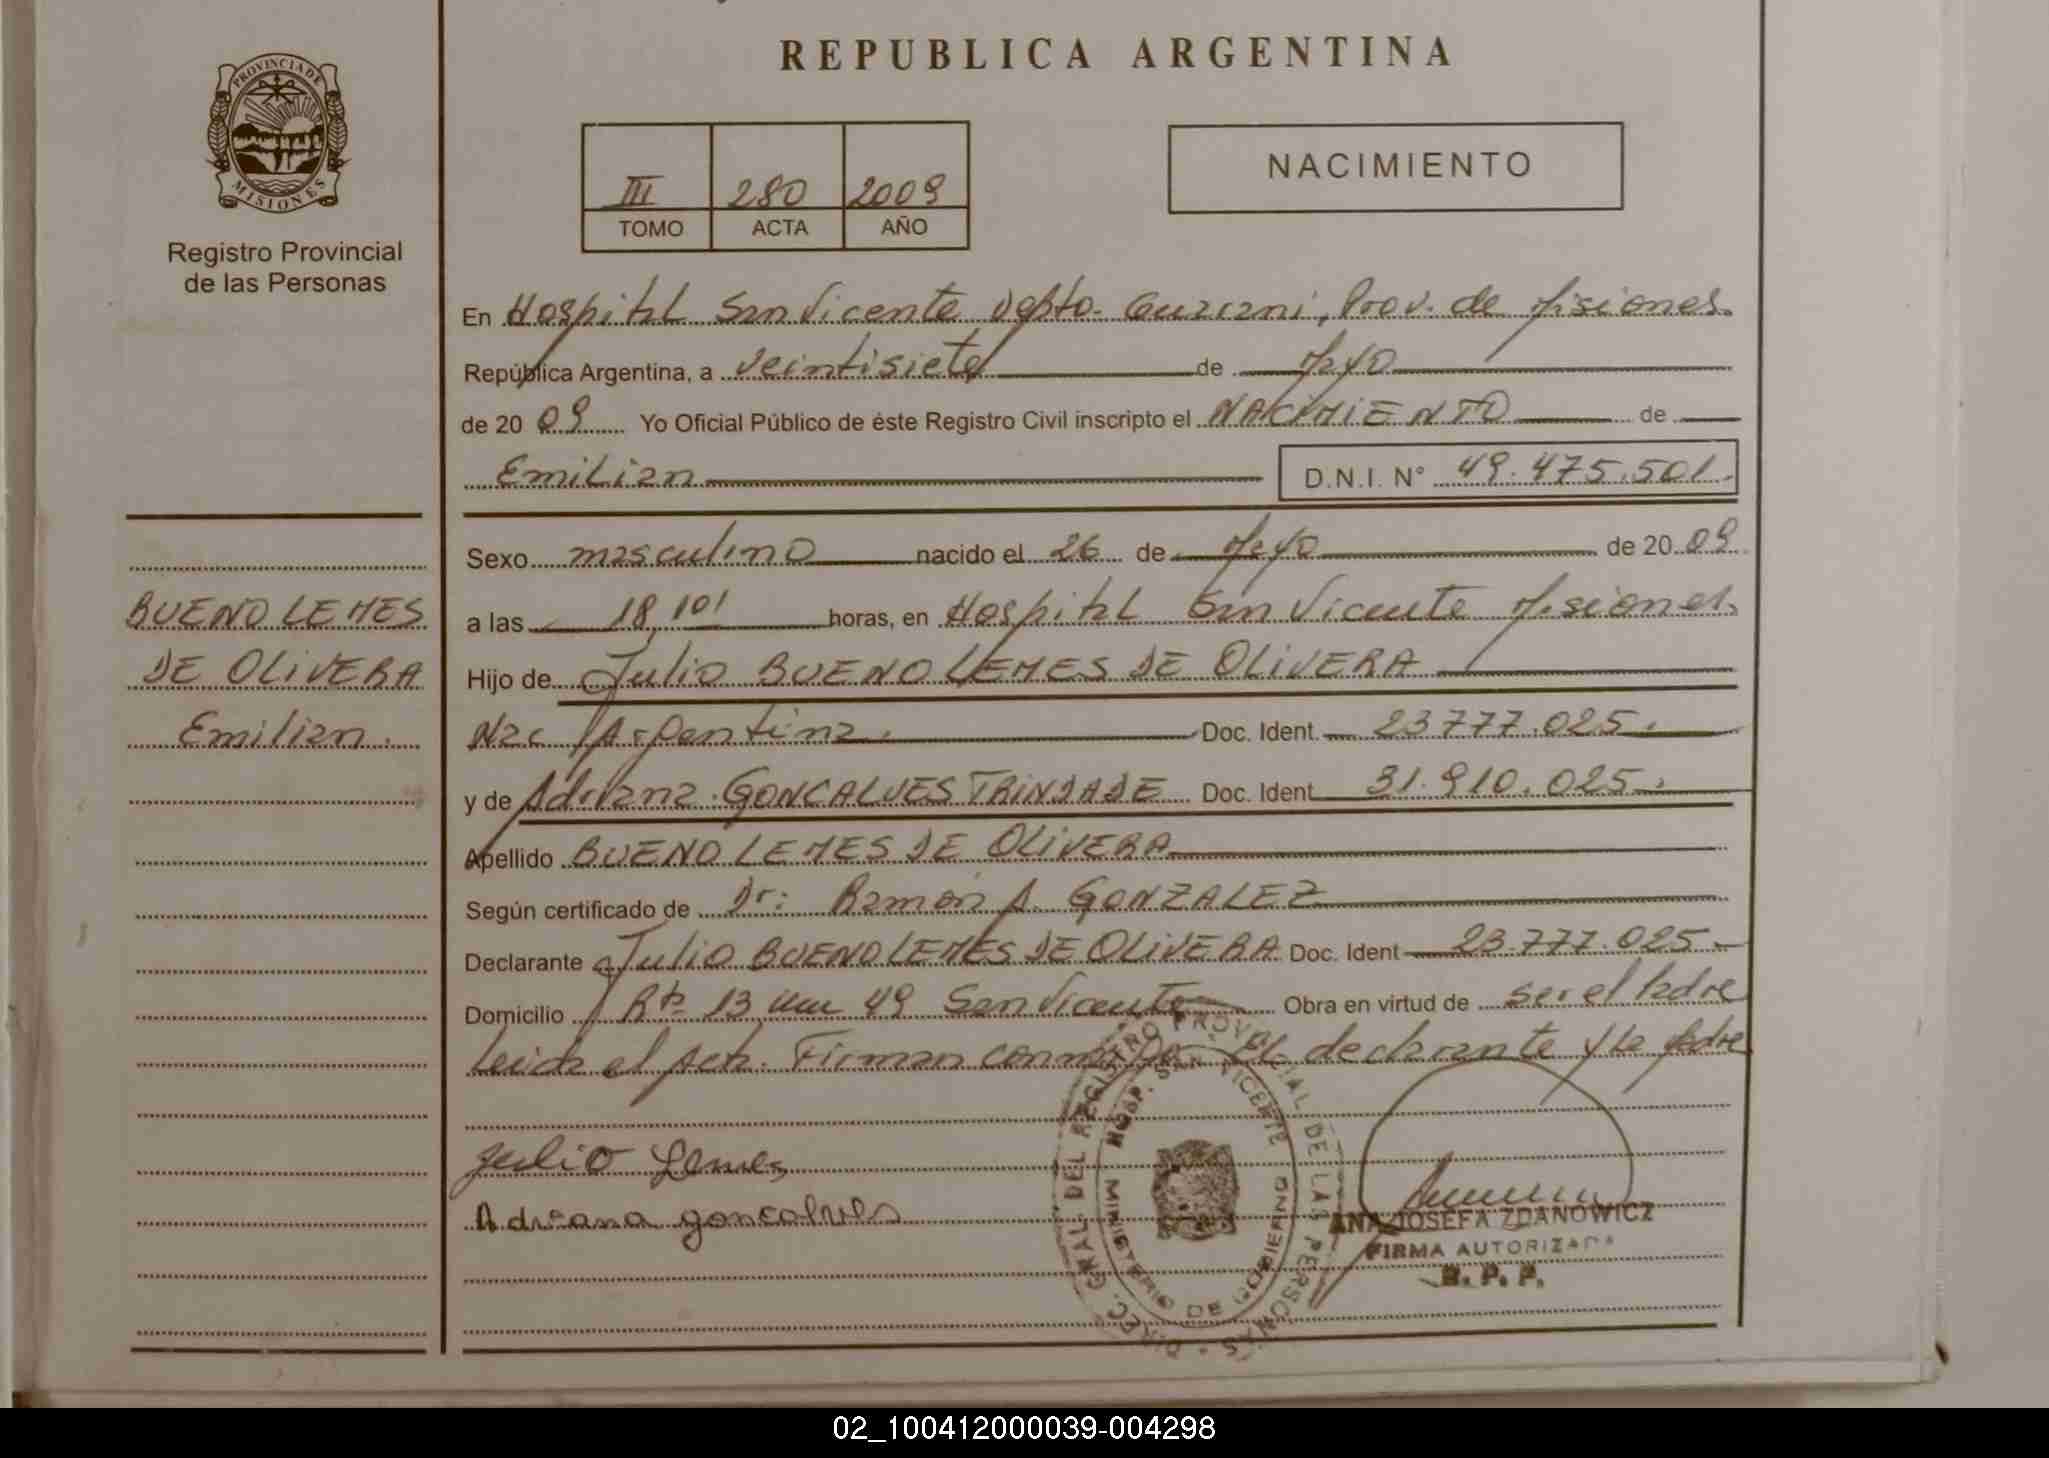 REPUBLICA ARGENTINA
PROVINCIA DE
MISIONES
Registro Provincial
de las Personas
III 280 2009
TOMO ACTA AÑO
NACIMIENTO
En Hospital San Vicente Depto. Guarani, Prov. de Misiones.
República Argentina, a veintisiete de Mayo
de 20 09 Yo Oficial Público de éste Registro Civil inscripto el NACIMIENTO de
Emilian D.N.I. N° 49.475.501.
Sexo masculino nacido el 26 de Mayo de 20 09
a las 18,10' horas, en Hospital San Vicente Misiones.
Hijo de Julio BUENO LEMES DE OLIVERA
Nac Argentina. Doc. Ident. 23.777.025.
y de Adriana GONCALVES TRINDADE Doc. Ident 31.910.025.
Apellido BUENO LEMES DE OLIVERA
Según certificado de Dr: Ramón A. GONZALEZ
Declarante Julio BUENO LEMES DE OLIVERA Doc. Ident 23.777.025.
Domicilio Rta 13 Km 49 San Vicente Obra en virtud de ser el Padre
Leida el Acta. Firman conmigo el declarante y la Madre
BUENO LEMES
DE OLIVERA
Emilian.
Julio Lemes
Adreana goncalves
DIREC. GRAL. DEL REGISTRO PROVINCIAL DE LAS PERSONAS
HOSP. SAN VICENTE
MINISTERIO DE GOBIERNO
ANA JOSEFA ZDANOWICZ
FIRMA AUTORIZADA
R. P. P.
02_100412000039-004298